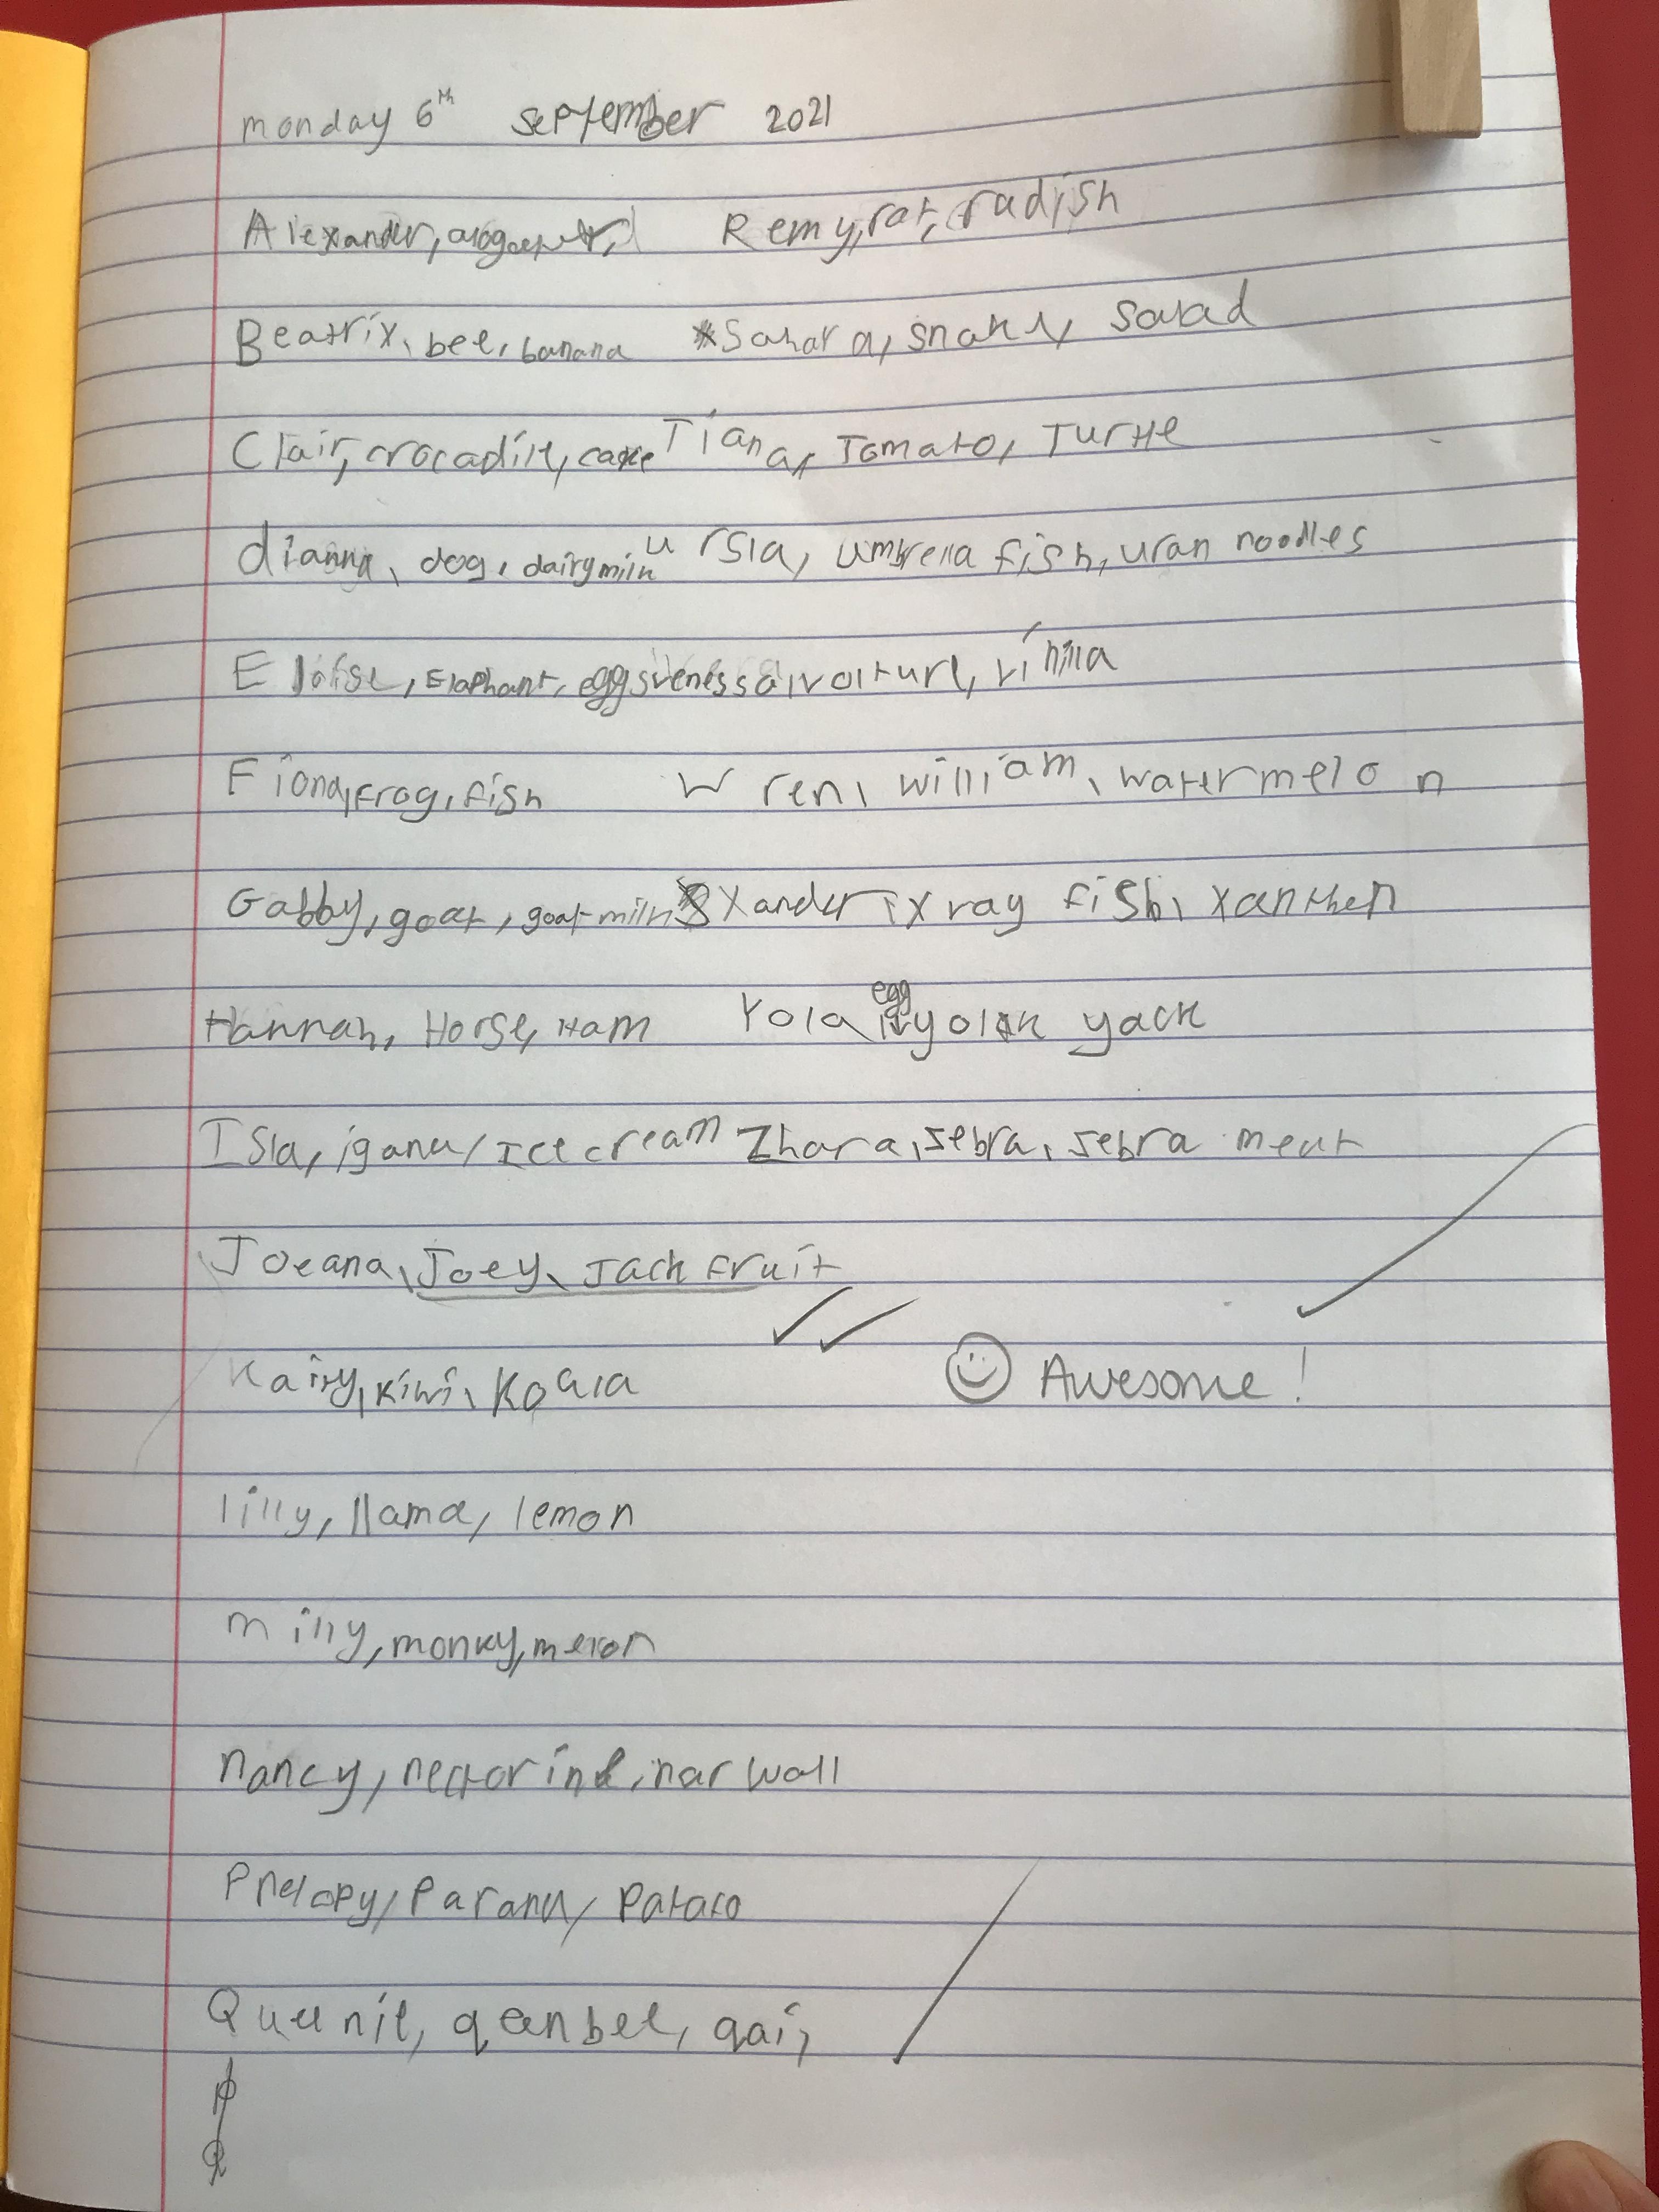 monday 6th september 2021
Alexander, Remy, rat, radish
Beatrix, bee, banana Sahara, snake, salad
Clair, crocadile, cake Tiana, Tomato, Turtle
dianna, dog, dairymilk ursla, umbrella fish, uran noodles
Eloise, Elaphant, eggs venessa, volture, vinilla
Fiona, frog, fish Wren, william, watermelon
Gabby, goat, goat milk Xander, x ray fish, xanthen
Hannah, Horse, Ham Yola egg yolk yack
Isla, iganu, Ice cream Zhara, zebra, zebra meat
Joeana, Joey, Jack fruit
kairy, kiwi, Koala
Awesome!
lilly, llama, lemon
milly, monky, melon
nancy, nectorine, narwall
Pnelopy, Parana, Patato
Queenie, qeenbee, qai,
P
Q